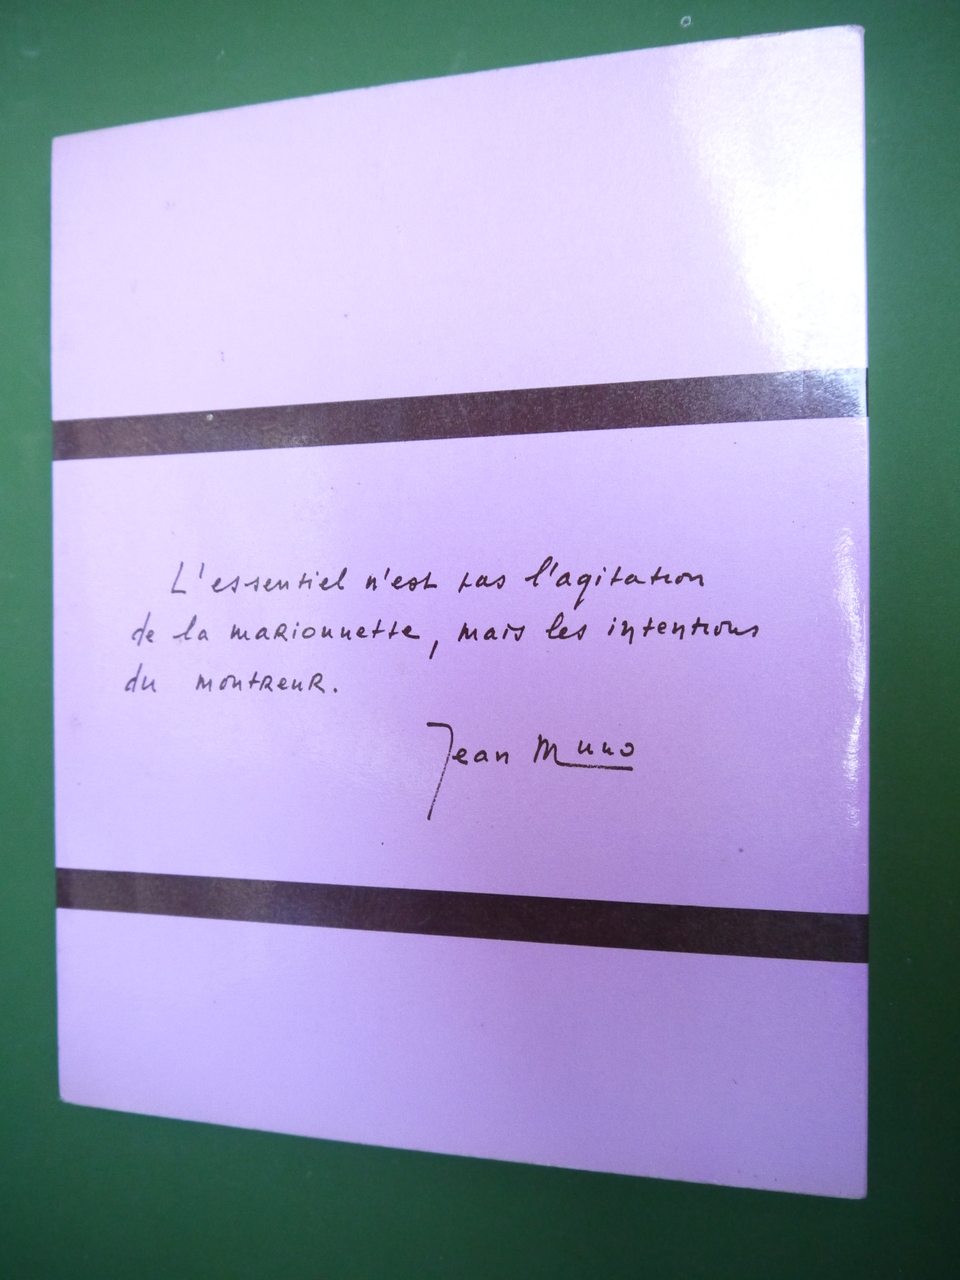 L'essentiel n'est pas l'agitation
de la marionnette, mais les intentions
du montreur.
Jean Muno